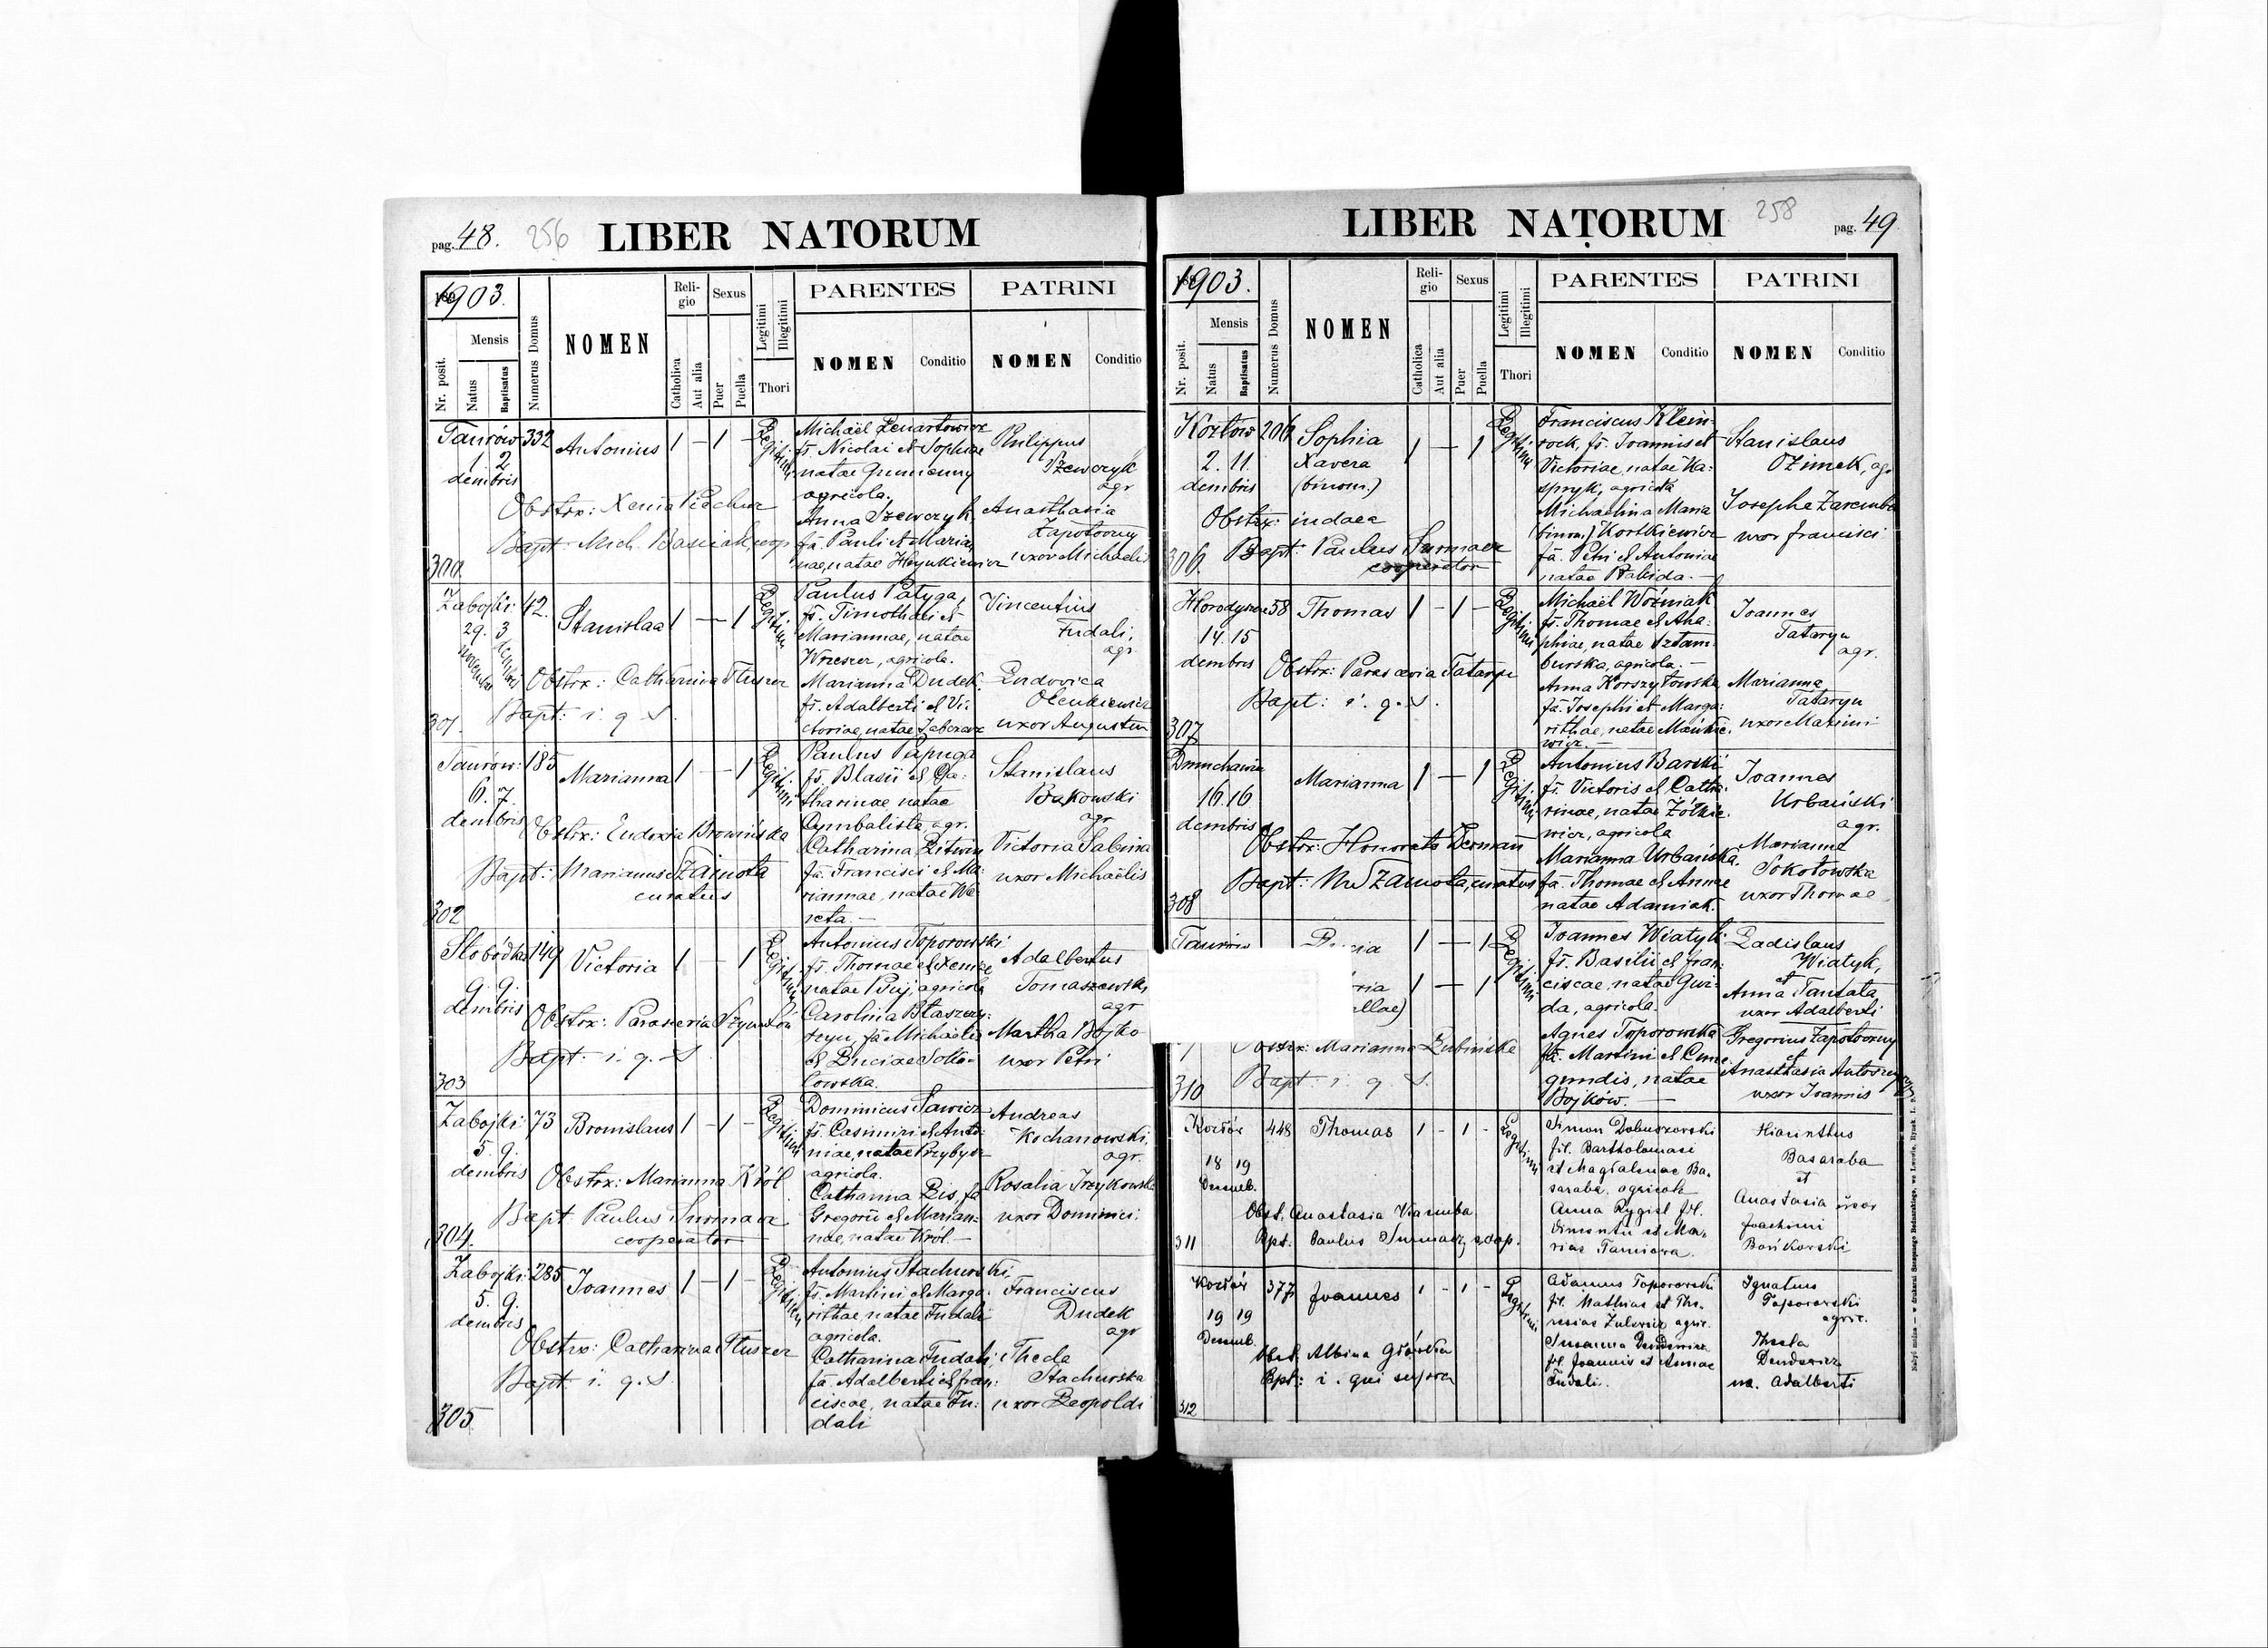 pag. 48. 256 LIBER NATORUM
1903.
Nr. posit.
Mensis
Natus
Baptisatus
Numerus Domus
NOMEN
Religio
Catholica
Aut alia
Sexus
Puer
Puella
Legitimi
Illegitimi
Thori
PARENTES
NOMEN
Conditio
PATRINI
NOMEN
Conditio
Taurów 332
1. 2
dembris
Antonius 1 — 1 —
Legitimi
Obstrx: Xenia
Bapt: Mich. Basiak, coop
300.
Michaël Lenartowicz
fs. Nicolai et Sophiae
natae Gumienny
agricola.
Anna Szewczyk
fa. Pauli et Marian
nae, natae
Philippus
Szewczyk
agr
Anasthasia
Zapotoczny
uxor Michaelis
Zabojki: 42.
29. 3
Stanislaa 1 — 1
Legitimi
Obstrx: Catharina Tluszcz
Bapt: i. q. S.
301.
Paulus Patyga,
fs. Timothai et
Mariannae, natae
Wreszcz, agricola.
Marianna Dudek,
fs. Adalberti et Vic
toriae, natae
Vincentius
Fudali,
agr.
Ludovica
Olenkiewicz
uxor Augustin
Taurów: 185
6. 7.
dembris
Marianna 1 — 1
Legitimi
Obstrx: Eudoxia Browińska
Bapt: Marianus Szamota
curatus
302
Paulus Papuga
fs. Blasii et Ca:
tharinae, natae
Cymbalista agr.
Catharina Litwin
fa. Francisci et Ma:
riannae, natae Wa
reta. —
Stanislaus
Bąkowski
agr
Victoria Sabina
uxor Michaëlis
Słobódka 149
9. 9.
dembris
Victoria 1 — 1
Legitimi
Obstrx: Parascevia
Bapt: i. q. S
303
Antonius Toporowski
fs. Thomae et Xeniae
natae Puj, agricola
Carolina Błaszcz:
czyn, fa Michaëlis
et Luciae Soko:
łowska.
Adalbertus
Tomaszewski
agr
Martha Bojko
uxor Petri
Zabojki: 73
5. 9.
dembris
Bronislaus 1 — 1 —
Legitimi
Obstrx: Marianna Król
Bapt Paulus Surmacz
cooperator
304.
Dominicus Sawicz
fs. Casimiri et Anto:
niae, natae Przybysz
agricola.
Catharina Lis, fa
Gregorii et Marian:
nae, natae Król. —
Andreas
Kochanowski,
agr.
Rosalia
uxor Dominici.
Zabojki: 285
5. 9.
dembris
Joannes 1 — 1 —
Legitimi
Obstrx: Catharina Tluszcz
Bapt: i. q. S.
305
Antonius Stachurski
fs. Martini et Marga:
rithae natae Fudali
agricola.
Catharina Fudali,
fa. Adalberti et fran:
ciscae, natae Fu:
dali
Franciscus
Dudek
agr
Thecla
Stachurska
uxor Leopoldi
LIBER NATORUM 258 pag. 49
1903.
Nr. posit.
Mensis
Natus
Baptisatus
Numerus Domus
NOMEN
Religio
Catholica
Aut alia
Sexus
Puer
Puella
Legitimi
Illegitimi
Thori
PARENTES
NOMEN
Conditio
PATRINI
NOMEN
Conditio
Kozłow 206
2. 11.
dembris
Sophia
Xavera
(binom.)
1 — 1
Legitimi
Obstrx: iudaea
Bapt: Paulus Surmacz
cooperator
306.
Franciscus Klein
rock, fs. Joannis et
Victoriae, natae Ka:
spryk, agricola
Michaelina Maria
(binom.) Kortkiewicz
fa. Petri et Antoniae
natae Rabida. —
Stanislaus
Ozimek, agr
Josepha Zaremba
uxor francisci
58
14. 15
dembris
Thomas 1 — 1 —
Legitimi
Obstrx: Parascevia Tataryn
Bapt: i. q. S.
307
Michaël Woźniak
fs. Thomae et Aha:
phiae, natae Sztam
burska, agricola. —
Anna Korszyłowska
fa. Josephi et Marga:
rithae, natae
wicz. —
Joannes
Tataryn
agr.
Marianna
Tataryn
uxor Maximi
16. 16
dembris
Marianna 1 — 1
Legitimi
Obstrx: Honorata Derman
Bapt: M. Szamota, curatus
308
Antonius Barski
fs. Victoris et Catha:
rinae, natae Żółkie:
wicz, agricola
Marianna Urbańska,
fa. Thomae et Annae
natae Adamiak.
Joannes
Urbański
agr.
Marianna
Sokołowska
uxor Thomae
Taurów
1 — 1
Legitimi
1 — 1
ellae)
Obstrx: Marianna Łubińska
Bapt: i. q. S.
310
Joannes Wiatyk
fs. Basilii et fran:
ciscae, natae Gwiz
da, agricola.
Agnes Toporowska
fa. Martini et Cune:
gundis, natae
Bojków. —
Ladislaus
Wiatyk,
et
Anna Tantała
uxor Adalberti
Gregorius Zapotoczny
et
Anasthasia
uxor Joannis
Kozłów 448
18 19
Decemb.
Thomas 1 - 1 -
Legitimi
Obst. Anastasia
Bpt. Paulus Surmacz,
311
Simon Dobuszowski
fil. Bartholomaei
et Magdalenae Ba-
saraba. agricola
Anna Rygiel fil.
et Ma-
riae
Hiacinthus
Basaraba
et
Anastasia uxor
Joachimi
Bońkowski
Kozłów 377
19 19
Decemb.
Joannes 1 - 1 -
Legitimi
Obst. Albina Głowska
Bpt: i. qui supra
312
Adamus Toporowski
fil. Mathiae et The-
resiae agric.
Susanna Dendewicz
fil. Joannis et Annae
Fudali.
Ignatius
Toporowski
agric.
Thecla
Dendewicz
ux. Adalberti